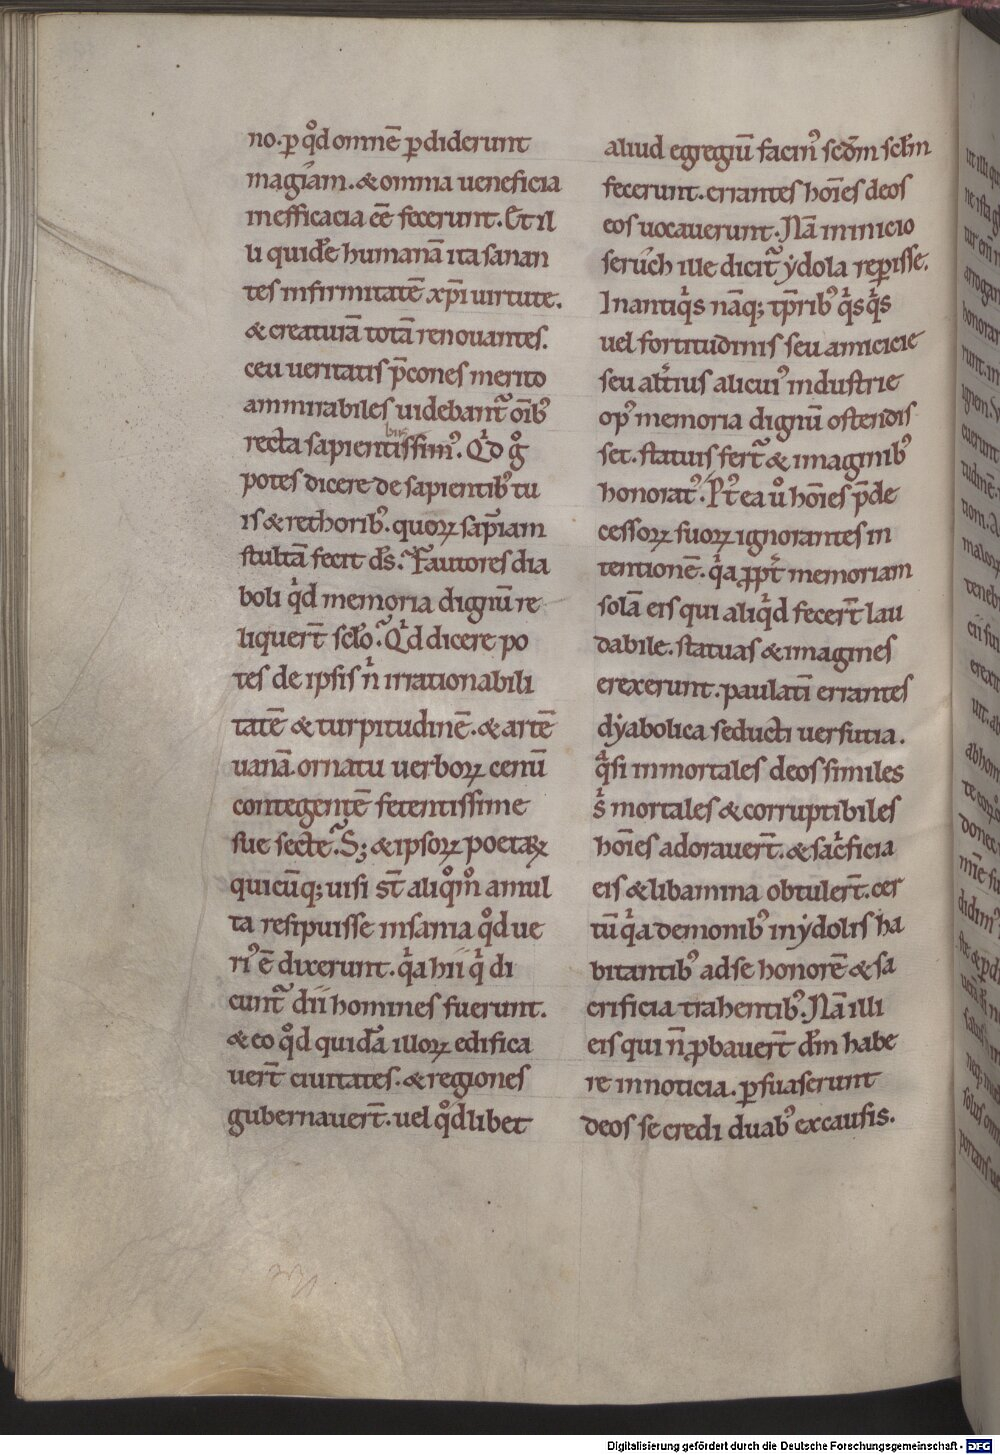 no. ꝑ qͦd omnē ꝑdiderunt
magiam. & omnia ueneficia
inefficacia eē fecerunt. Et il
li quidē humanā ita sanan
tes infirmitatē xp̄i uirtute.
& creaturā totā renouantes.
ceu ueritatis p̄cones merito
ammirabiles uidebant᷑ oīb᷒
recta sapientissim᷒. Qͥd gͦ
bus
potes dicere de sapientib᷒ tu
is & rethorib᷒. quoꝝ sap̄iam
stultā fecit d̄s. Fautores dia
boli qͥd memoria dignū re
liquert̄ sclo᷑. Qͥd dicere po
tes de ipsis nͥ irrationabili
tatē & turpitudinē. & artē
uanā. ornatu uerboꝝ cenū
contegentē fetentissime
sue secte. Sꝫ & ipsoꝝ poetaꝝ
quicūqꝫ uisi st̄ aliqͦmͦ a mul
ta resipuisse insania qͦd ue
ri᷒ ē dixerunt. qͥa hii qͥ di
cunt᷑ dii homines fuerunt.
& eo qͦd quidā illoꝝ edifica
uert̄ ciuitates. & regiones
gubernauert̄. uel qͦdlibet
aliud egregiū facin᷒ scd̄m sclm̄
fecerunt. errantes hoīes deos
eos uocauerunt. Nā in inicio
seruch ille dicit᷑ ẏdola reꝑisse.
In antiqͥs nāqꝫ tp̄rib᷒ qͥsqͥs
uel fortitudinis seu amicicie
seu alt̄ius alicui᷒ industrie
op᷒ memoria dignū ostendis
set. statuis fert᷑ & imaginib᷒
honorat᷒. Pt᷒ ea uͦ hoīes p̄de
cessoꝝ suoꝝ ignorantes in
tentionē. qͥa ꝓpt̄ memoriam
solā eis qui aliqͥd fecert̄ lau
dabile. statuas & imagines
erexerunt. paulatī errantes
dẏabolica seducti uersutia.
qͣsi inmortales deos similes
sͥ mortales & corruptibiles
hoīes adorauert̄. & sac̄ficia
eis & libamina obtulert̄. cer
tū qͥa demonib᷒ in ẏdolis ha
bitantib᷒ ad se honorē & sa
crificia trahentib᷒. Nā illi
eis qui n̄ ꝓbauert̄ dm̄ habe
re in noticia. ꝑsuaserunt
deos se credi duab᷒ ex causis.
Digitalisierung gefördert durch die Deutsche Forschungsgemeinschaft - DFG